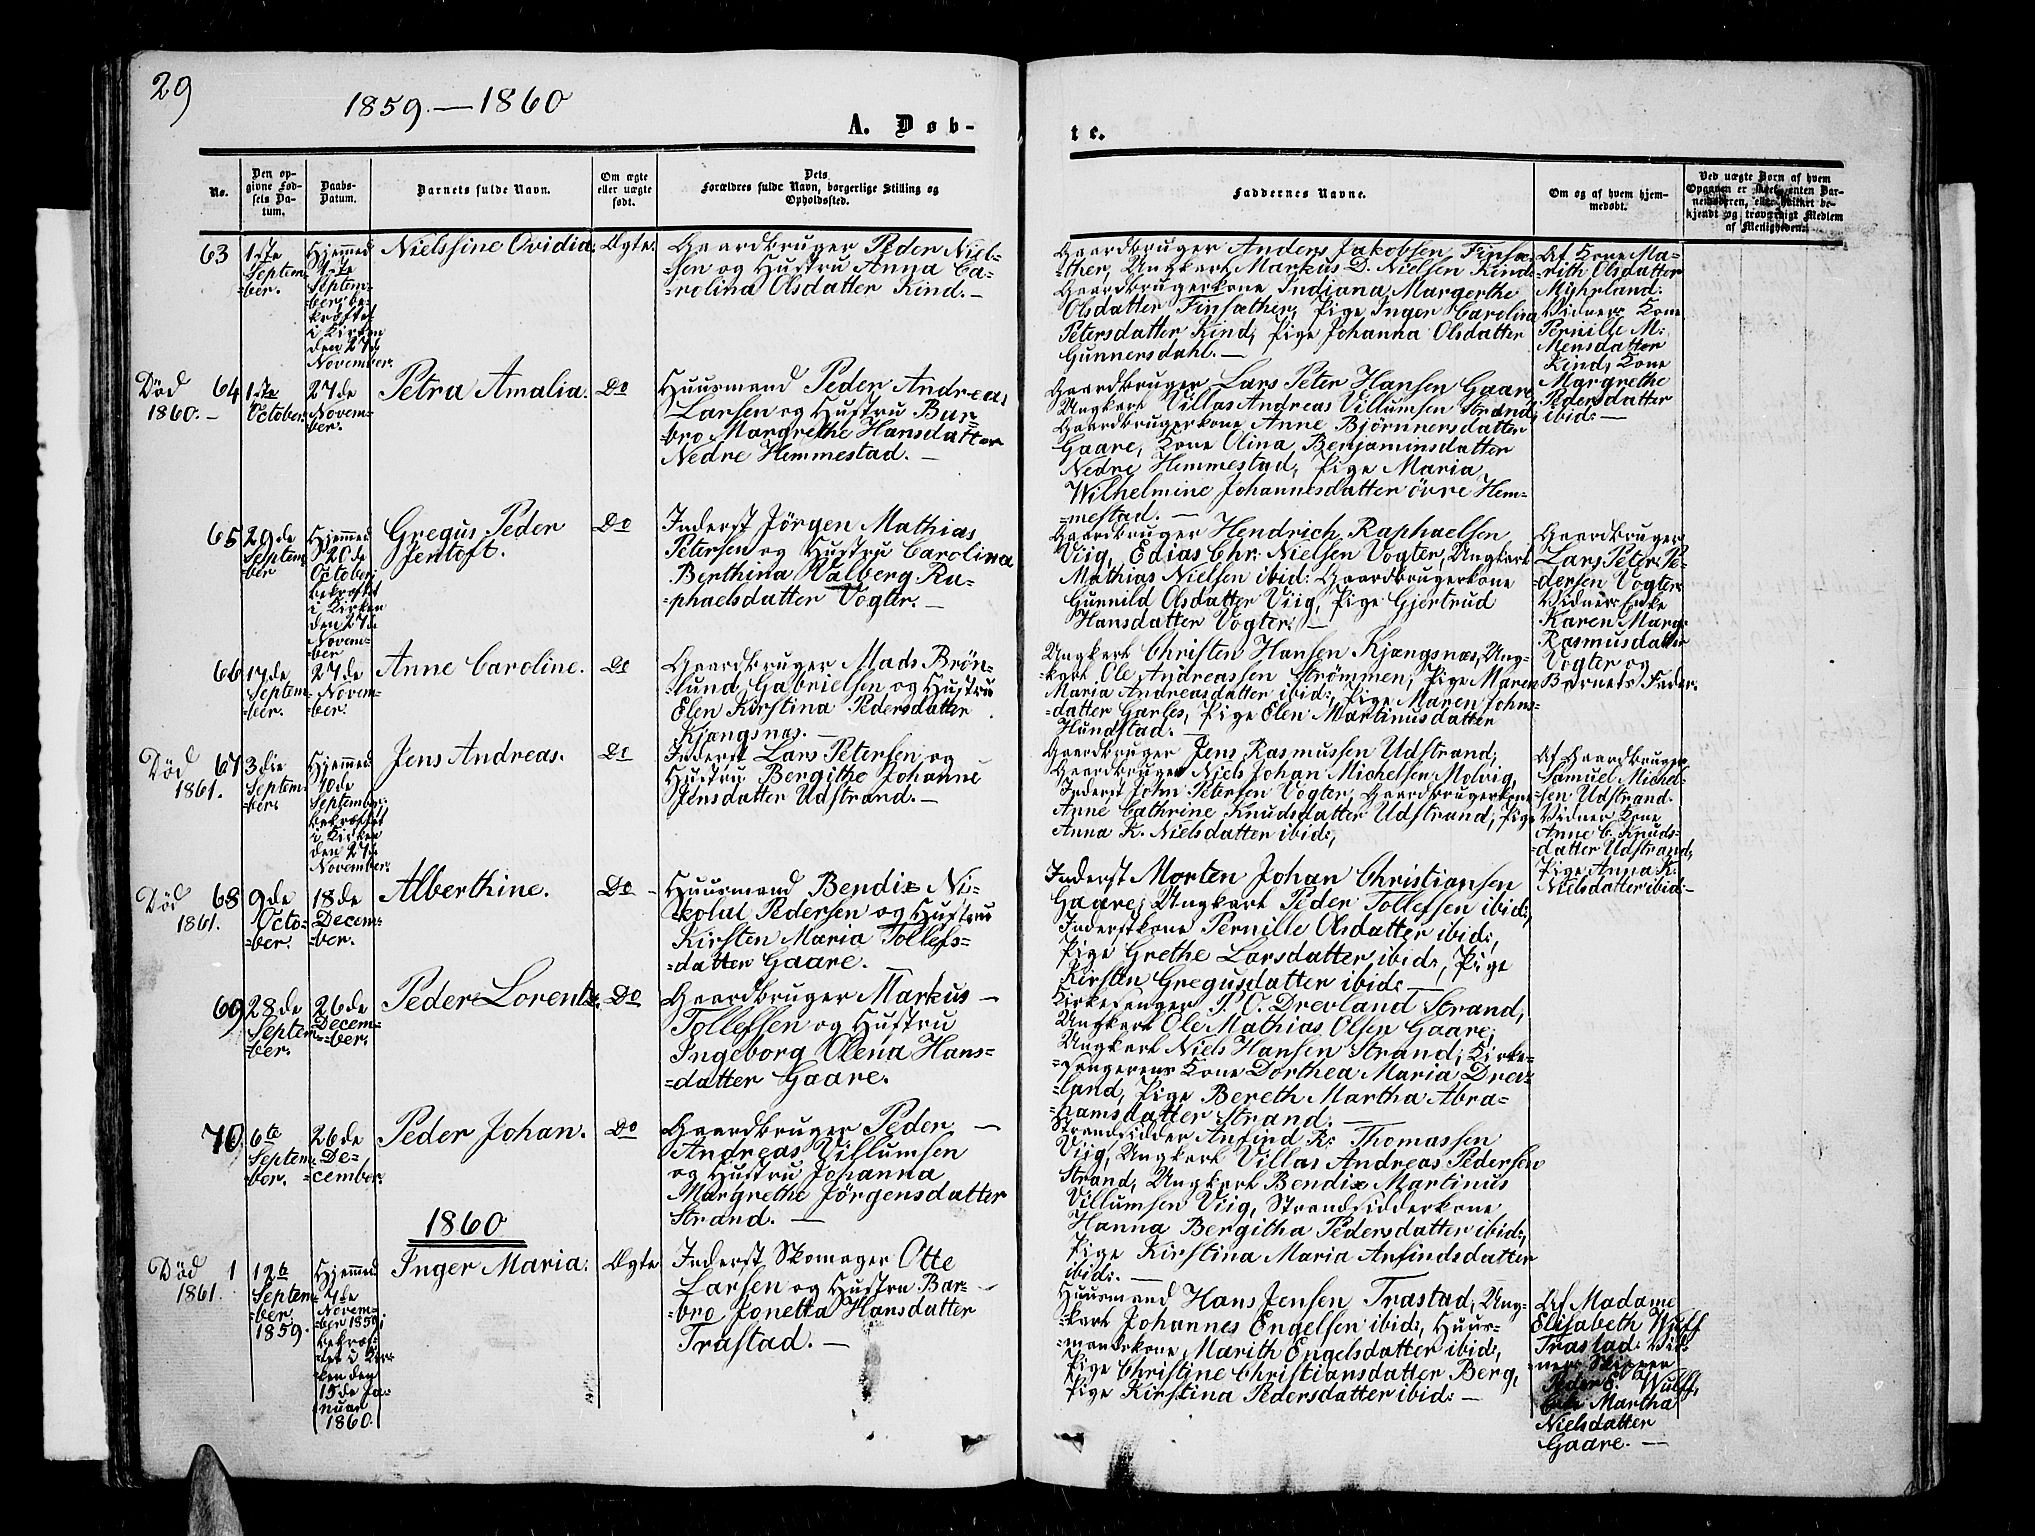 29
1859. — 1860
A. Døb-
te.
No.
Den op-
givne Fød-
sels Da-
tum.
Daabs-
Datum.
Barnets fulde Navn.
Om ægte
eller uægte
født.
Dets
Forældres fulde Navn, borgerlige Stilling og
Opholdssted.
Faddernes Navne.
Om og af hvem hjem-
medøbt.
Ved uægte Børn af hvem
Opgaven er skeet, enten Bar-
nefaderen, eller hvilket be-
kjendt og troværdigt Medlem
af Menigheden.
63
1ste
Septem-
-ber.
Hjemmed:
4ste
Septem-
ber; be-
kræftet
i Kirken
den 27de
November.
Nielssine Ovidia.
Ægte.
Gaardbruger Peder Niel-
-sen og Hustru Anna Ca-
-rolina Olsdatter Kind. —
Gaardbruger Anders Jakobsen Finsæ-
-ther, Ungkarl Markus D. Nielsen Kind,
Gaardbrugerkone Indiana Margerthe
Olsdatter Finsæther, Pige Inger Carolina
Petersdatter Kind, Pige Johanna Olsdatter
Gunnersdahl. —
Af Kone Ma-
-rith Olsdatter
Myhrland:
Vidner: Kone
Pernille M:
Mensdatter
Kind, Kone
Margrethe
Pedersdatter
ibid: —
Død
1860. —
64
1ste
October.
27de
Novem-
ber.
Petra Amalia.
Do
Huusmand Peder Andreas
Larsen og Hustru Bar-
-bro Margrethe Hansdatter
Nedre Hemmestad. —
Gaardbruger Lars Peter Hansen Gaare,
Ungkarl Villas Andreas Villumsen Strand,
Gaardbrugerkone Anne Bjørnnersdatter
Gaare, Kone Olina Benjaminsdatter
Nedre Hemmestad, Pige Maria
Wilhelmine Johannesdatter øvre Hem-
-mestad. —
65
29de
Septem-
-ber
Hjemmed:
20de
October;
bekræftet
i Kirken
den 27de
Novem-
ber
Gregus Peder
Jentoft.
Do
Inderst Jørgen Mathias
Petersen og Hustru Carolina
Berthina Walberg Ra-
-phaelsdatter Vogter. —
Gaardbruger Hendrich Raphaelsen
Viig, Edias Chr: Nielsen Vogter, Ungkarl
Mathias Nielsen ibid: Gaardbrugerkone
Gunnild Olsdatter Viig, Pige Gjertrud
Hansdatter Vogter: —
Gaardbruger
Lars Peter Pe-
-dersen Vogter.
Vidner: Enke
Karen Marg:
Rasmusdatter
Vogter og
Barnets Fader.
66
17de
Septem-
ber.
27de
Novem-
-ber.
Anne Caroline.
Do
Gaardbruger Mads Brøn-
-lund Gabrielsen og Hustru
Elen Kirstina Pedersdatter
Kjængsnæs. —
Ungkarl Christen Hansen Kjængsnæs, Ung-
-karl Ole Andreassen Strømmen, Pige Maren
Maria Andreasdatter ibid:, Pige Maren Johns-
-datter Garles, Pige Elen Martinusdatter
Hundstad. —
Død
1861.
67
3die
Septem-
-ber.
Hjemmed:
10de
September;
bekræftet
i Kirken
den 27de
November.
Jens Andreas.
Do
Inderst Lars Petersen og
Hustru Bergithe Johanne
Jensdatter Udstrand. —
Gaardbruger Jens Rasmussen Udstrand,
Gaardbruger Niels Johan Michelsen Molvig,
Inderst John Petersen Vogter, Gaardbrugerkone
Anne Cathrine Knudsdatter Udstrand, Pige
Anna K. Nielsdatter ibid:,
Af Gaardbruger
Samuel Michel-
-sen Udstrand.
Vidner Kone
Anne C. Knuds-
-datter Udstrand,
Pige Anna K.
Nielsdatter ibid: —
Død
1861.
68
9de
Octo-
-ber.
18de
Decem-
-ber.
Alberthine.
Do
Huusmand Bendix Ni-
-kolai Pedersen og Hustru
Kirsten Maria Tollefs-
-datter Gaare. —
Inderst Morten Johan Christiansen
Gaare, Ungkarl Peder Tollefsen ibid:,
Inderstkone Pernille Olsdatter ibid:,
Pige Grethe Larsdatter ibid:, Pige
Kirsten Gregusdatter ibid: —
69
28de
Septem-
ber.
26de
Decem-
-ber.
Peder Lorents.
Do
Gaardbruger Markus —
Tollefsen og Hustru
Ingeborg Olena Hans-
-datter Gaare.
Kirkesanger P. C. Drevland Strand,
Ungkarl Ole Mathias Olsen Gaare,
Ungkarl Niels Hansen Strand, Kirke-
-sangerens Kone Dorthea Maria Drev-
-land, Pige Bereth Martha Abra-
-hamsdatter Strand. —
70
6te
Septem-
ber.
26de
De-
-cember.
Peder Johan.
Do
Gaardbruger Peder —
Andreas Villumsen
og Hustru Johanna
Margrethe Jørgensdatter
Strand. —
Strandsidder Anfind R: Thomassen
Viig, Ungkarl Villas Andreas Pedersen
Strand, Ungkarl Bendix Martinus
Villumsen Viig, Strandsidderkone
Hanna Bergitha Pedersdatter ibid:,
Pige Kirstina Maria Anfindsdatter
ibid:. —
1860
Død
1861.
1
12te
Septem-
-ber
1859.
Hjemmed:
7de
Novem-
-ber 1859;
bekræf-
-tet i Kir-
-ken den
15de Ja-
nuar
1860.
Inger Maria.
Ægte
Inderst Skomager Otte
Larsen og Hustru Bar- —
-bro Jonetta Hansdatter
Trastad. —
Huusmand Hans Jensen Trastad, Ung-
-karl Johannes Engelsen ibid:, Huus-
-mandskone Marith Engelsdatter ibid:,
Pige Christine Christiansdatter Berg,
Pige Kirstina Pedersdatter ibid: —
Af Madame
Elisabeth Wulff
Trastad: Vid-
-ner: Skipper
Peder E. Wulff,
Martha
Nielsdatter
Gaare. —